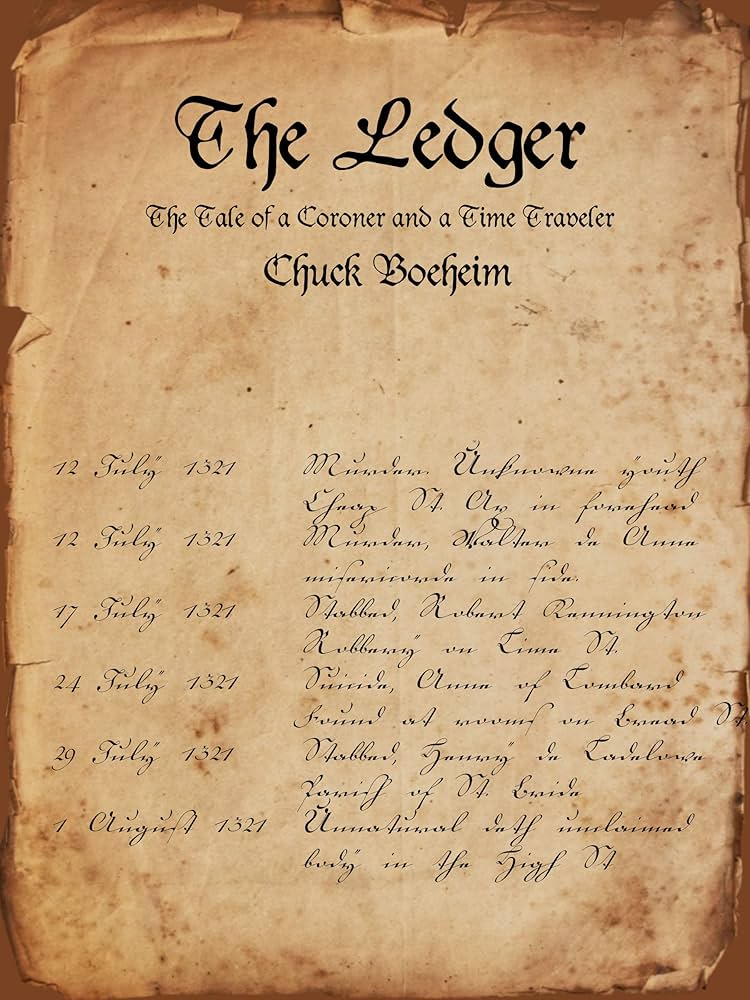 The Ledger
The Tale of a Coroner and a Time Traveler
Chuck Boeheim
12 July 1321 Murder. Unknowne youth
Cheap St. Ax in forehead
12 July 1321 Murder, Walter de Anne
misericorde in side.
17 July 1321 Stabbed, Robert Kennington
Robbery on Lime St.
24 July 1321 Suicide, Anne of Lombard
Found at rooms on Bread St.
29 July 1321 Stabbed, Henry de Cadelowe
Parish of St. Bride
1 August 1321 Unnatural deth unclaimed
body in the High St